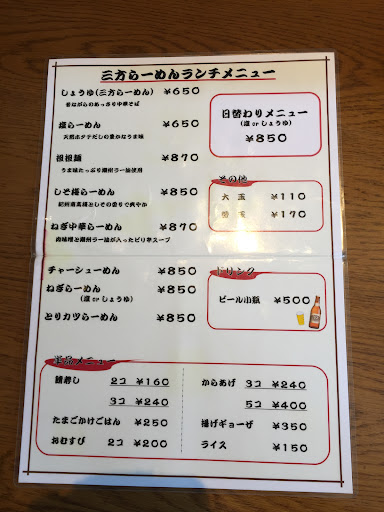 三方らーめんランチメニュー
しょうゆ(三方らーめん) ¥650
昔ながらのあっさり中華そば
塩らーめん ¥650
天然ホタテだしの豊かなうま味
担担麺 ¥870
うま味たっぷり潮州ラー油使用
しそ梅らーめん ¥850
紀州南高梅としその香りで爽やか
ねぎ中華らーめん ¥870
肉味噌と潮州ラー油が入ったピリ辛スープ
チャーシューめん ¥850
ねぎらーめん ¥850
(塩 or しょうゆ)
とりカツらーめん ¥850
日替わりメニュー
(塩 or しょうゆ)
¥850
その他
大玉 ¥110
替玉 ¥170
ドリンク
ビール小瓶 ¥500
単品メニュー
鯖寿し 2コ ¥160
3コ ¥240
たまごかけごはん ¥250
おむすび 2コ ¥200
からあげ 3コ ¥240
5コ ¥400
揚げギョーザ ¥350
ライス ¥150